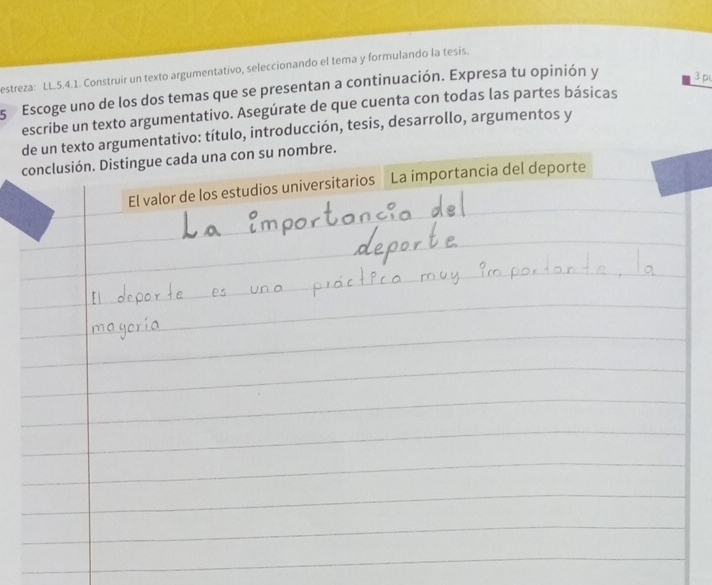 estreza: LL.5.4.1. Construir un texto argumentativo, seleccionando el tema y formulando la tesis.
5 Escoge uno de los dos temas que se presentan a continuación. Expresa tu opinión y
3 pu
escribe un texto argumentativo. Asegúrate de que cuenta con todas las partes básicas
de un texto argumentativo: título, introducción, tesis, desarrollo, argumentos y
conclusión. Distingue cada una con su nombre.
El valor de los estudios universitarios La importancia del deporte
La importancia del
deporte
El deporte es una práctica muy importante, la
mayoria